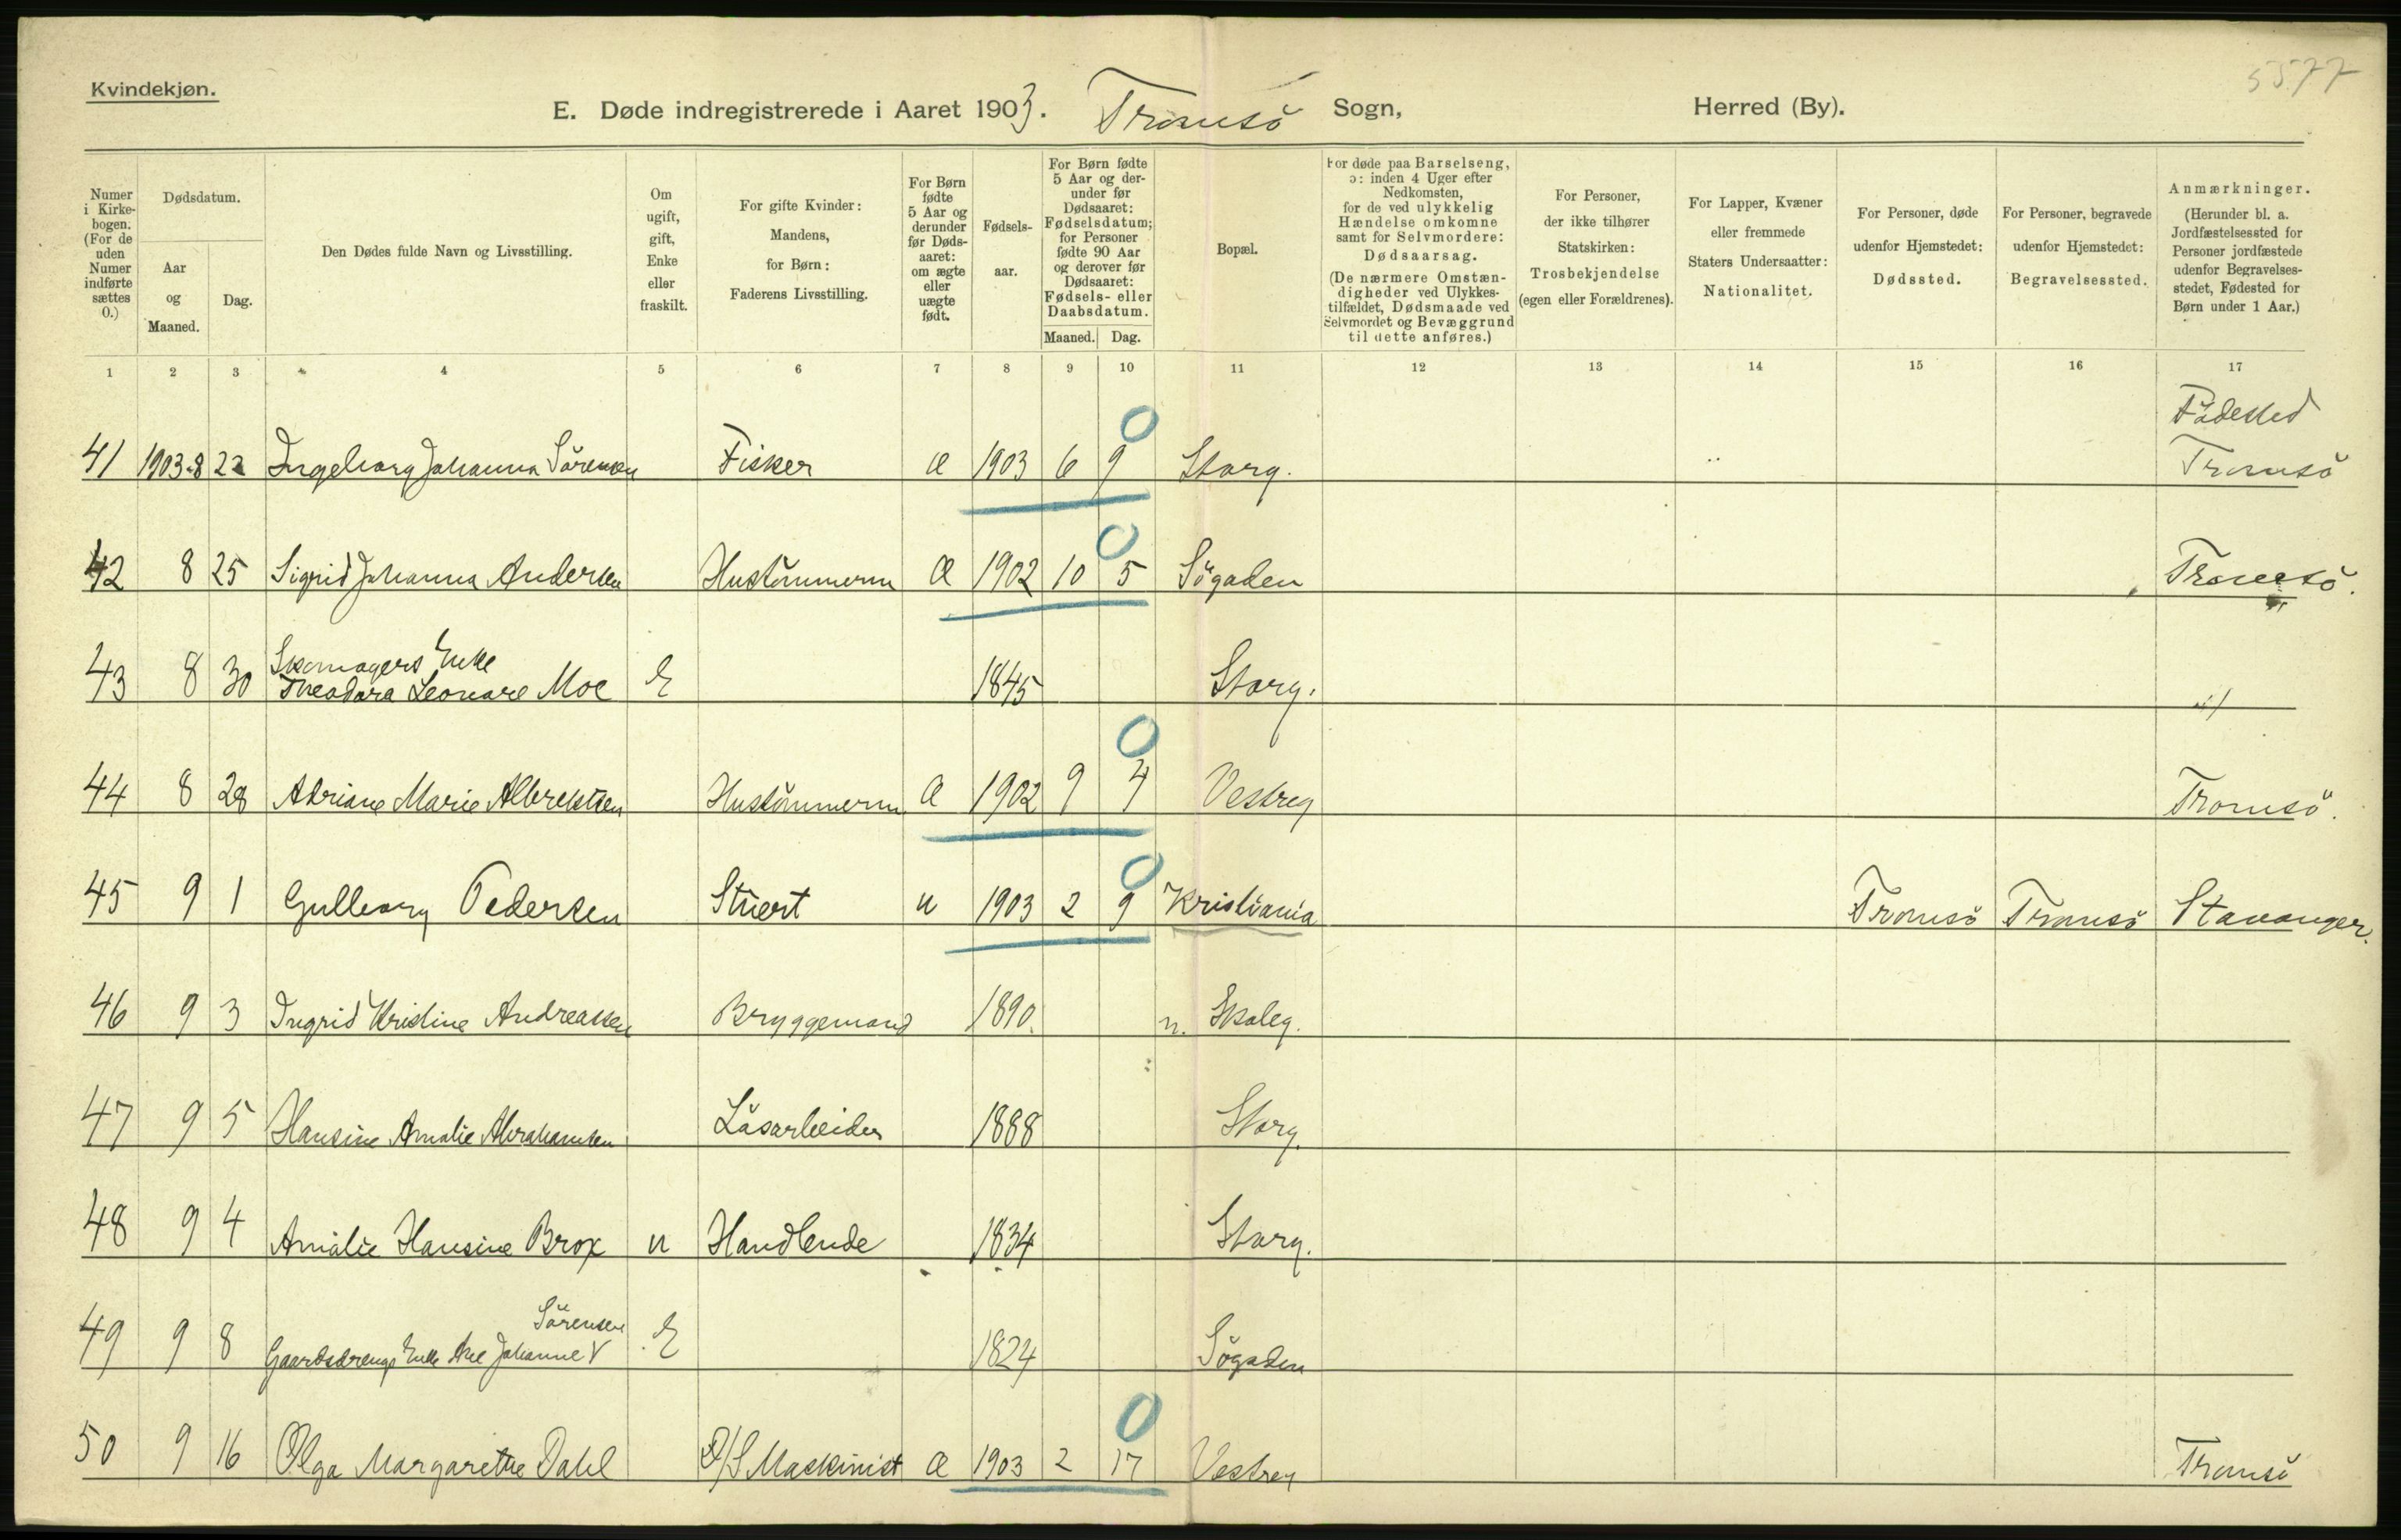 Kvindekjøn.
5577
E. Døde indregistrerede i Aaret 1903. Tromsö Sogn, Herred (By).
Numer i Kirkebogen. (For de uden Numer indførte sættes 0.)
Dødsdatum.
Aar og Maaned.
Dag.
Den Dødes fulde Navn og Livsstilling.
Om ugift, gift, Enke eller fraskilt.
For gifte Kvinder: Mandens, for Børn: Faderens Livsstilling.
For Børn fødte 5 Aar og derunder før Dødsaaret: om ægte eller uægte født.
Fødselsaar.
For Børn fødte 5 Aar og derunder før Dødsaaret: Fødselsdatum; for Personer fødte 90 Aar og derover før Dødsaaret: Fødsels- eller Daabsdatum.
Maaned. Dag.
Bopæl.
For døde paa Barselseng, ɔ: inden 4 Uger efter Nedkomsten, for de ved ulykkelig Hændelse omkomne samt for Selvmordere: Dødsaarsag. (De nærmere Omstændigheder ved Ulykkestilfældet, Dødsmaade ved Selvmordet og Bevæggrund til dette anføres.)
For Personer, der ikke tilhører Statskirken: Trosbekjendelse (egen eller Forældrenes).
For Lapper, Kvæner eller fremmede Staters Undersaatter: Nationalitet.
For Personer, døde udenfor Hjemstedet: Dødssted.
For Personer, begravede udenfor Hjemstedet: Begravelsessted.
Anmærkninger. (Herunder bl. a. Jordfæstelsessted for Personer jordfæstede udenfor Begravelsesstedet, Fødested for Børn under 1 Aar.)
1 2 3 4 5 6 7 8 9 10 11 12 13 14 15 16 17
Födested
41 1903-8 22 Ingeborg Johanna Sörensen Fisker Æ 1903 6 9 0 Storg. Tromsö
42 8 25 Sigrid Johanna Andersen Hustömmerm Æ 1902 10 5 0 Sögaden Tromsö.
Skomagers Enke
43 8 30 Theodora Leonare Moe E 1845 Storg.
44 8 28 Adriane Marie Albrektsen Hustömmerm Æ 1902 9 4 0 Vestreg Tromsö.
45 9 1 Gulborg Pedersen Stuert u 1903 2 9 0 Kristiania Tromsö Tromsö Stavanger.
46 9 3 Ingrid Kristine Andreassen Bryggemand 1890. n. Skoleg.
47 9 5 Hansine Amalie Abrahamsen Läsarbeider 1888 Storg.
48 9 4 Amalie Hansine Brox u Handlende 1834 Storg.
Sörensen
49 9 8 Gaardsdrengs Enke Ane Johanne V E 1824 Sögaden
50 9 16 Olga Margarethe Dahl D/S Maskinist Æ 1903 2 17 0 Vestreg Tromsö